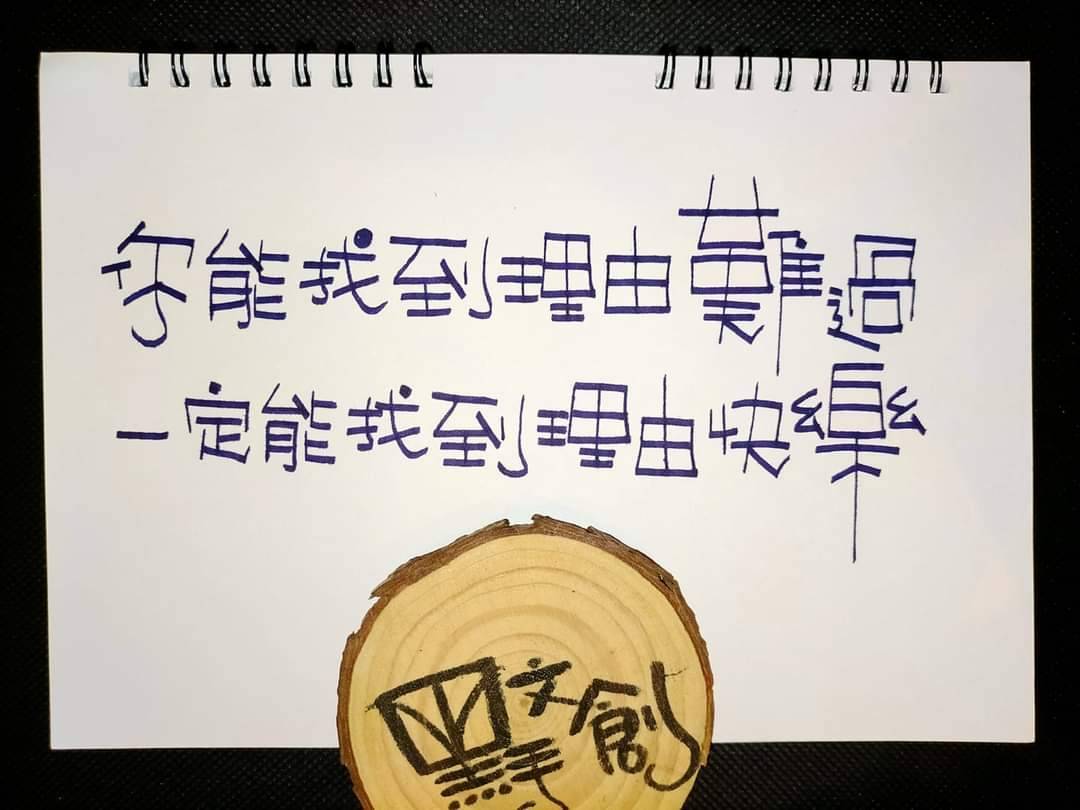 你能找到理由難過
一定能找到理由快樂
文創